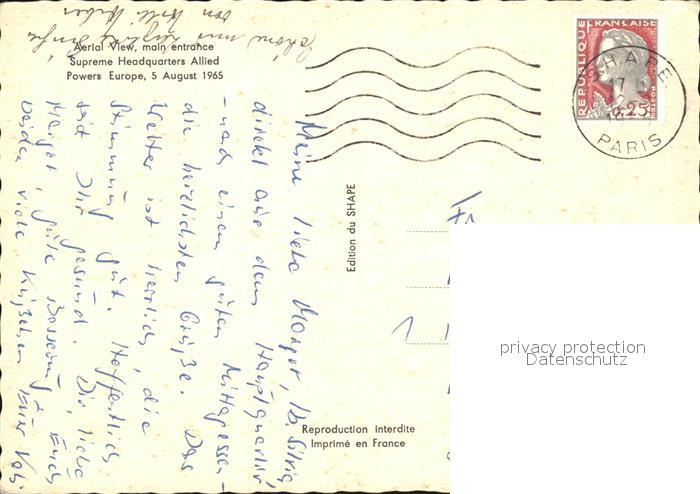 Aerial View, main entrance
Supreme Headquarters Allied
Powers Europe, 5 August 1965
REPUBLIQUE FRANÇAISE
0,25
S.H.A.P.E
17
PARIS
Edition du SHAPE
Meine liebe Margot, lb. Silvia,
direkt aus dem Hauptquartier
- nach einem guten Mittagessen -
die herzlichsten Grüße. Das
Wetter ist herrlich, die
Stimmung gut. Hoffentlich
seid Ihr gesund. Dir liebe
Margot gute Besserung & Euch
beiden viele Küßchen Euer
Reproduction Interdite
Imprimé en France
privacy protection
Datenschutz